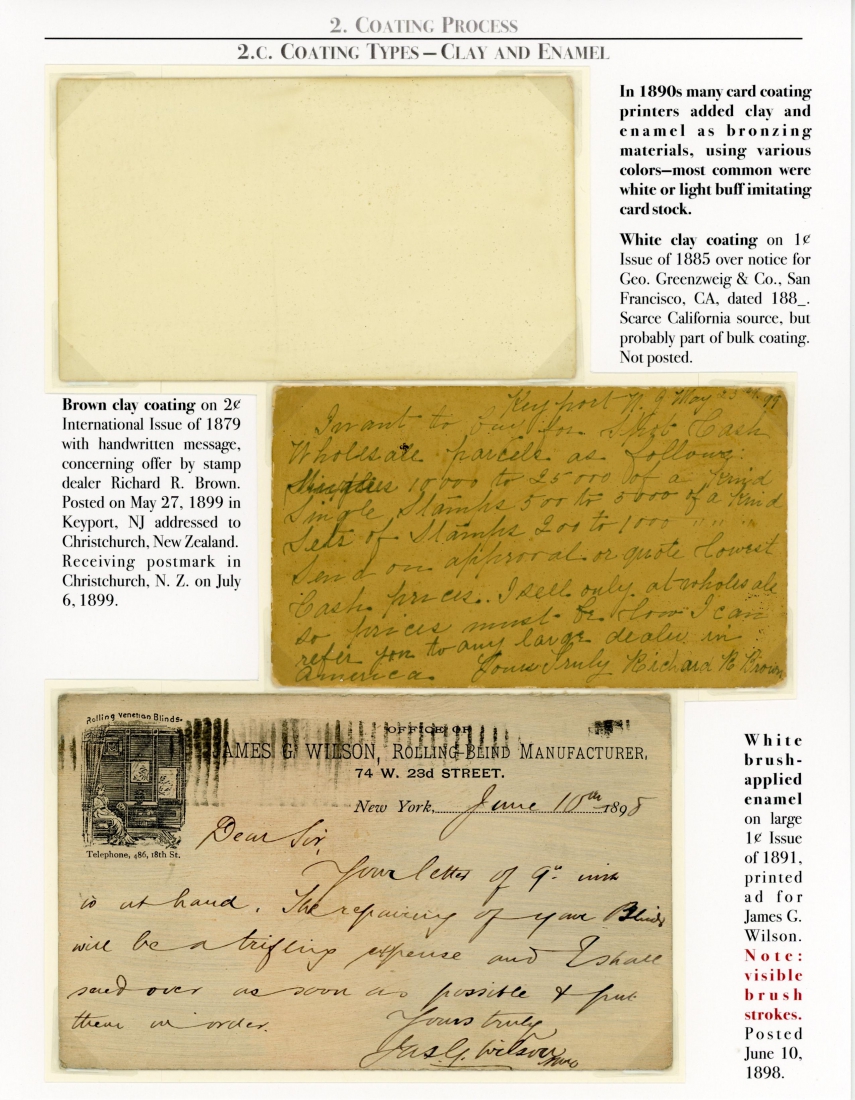 2. COATING PROCESS
2.C. COATING TYPES – CLAY AND ENAMEL
In 1890s many card coating
printers added clay and
enamel as bronzing
materials, using various
colors—most common were
white or light buff imitating
card stock.
White clay coating on 1¢
Issue of 1885 over notice for
Geo. Greenzweig & Co., San
Francisco, CA, dated 188_.
Scarce California source, but
probably part of bulk coating.
Not posted.
Brown clay coating on 2¢
International Issue of 1879
with handwritten message,
concerning offer by stamp
dealer Richard R. Brown.
Posted on May 27, 1899 in
Keyport, NJ addressed to
Christchurch, New Zealand.
Receiving postmark in
Christchurch, N. Z. on July
6, 1899.
Keyport N. J May 99
I want to buy for Cash
Wholesale parcels as follows:
10,000 to 25000 of a Kind
Single Stamps 500 to 5000 of a Kind
Sets of Stamps 200 to 1000 " " "
Send on approval or quote lowest
Cash prices. I sell only at wholesale
so prices must be low I can
refer you to any large dealer in
America. Yours Truly Richard R Brown
Rolling Venetian Blinds.
OFFICE OF
JAMES G. WILSON, ROLLING-BLIND MANUFACTURER,
74 W. 23d STREET.
New York, June 10th 1898
Telephone, 486, 18th St.
Dear Sir,
Your letter of 9" inst
is at hand. The repairing of your Blinds
will be a trifling expense and I shall
send over as soon as possible & put
them in order.
Yours truly
Jas. G. Wilson
White
brush-
applied
enamel
on large
1¢ Issue
of 1891,
printed
ad for
James G.
Wilson.
Note:
visible
brush
strokes.
Posted
June 10,
1898.